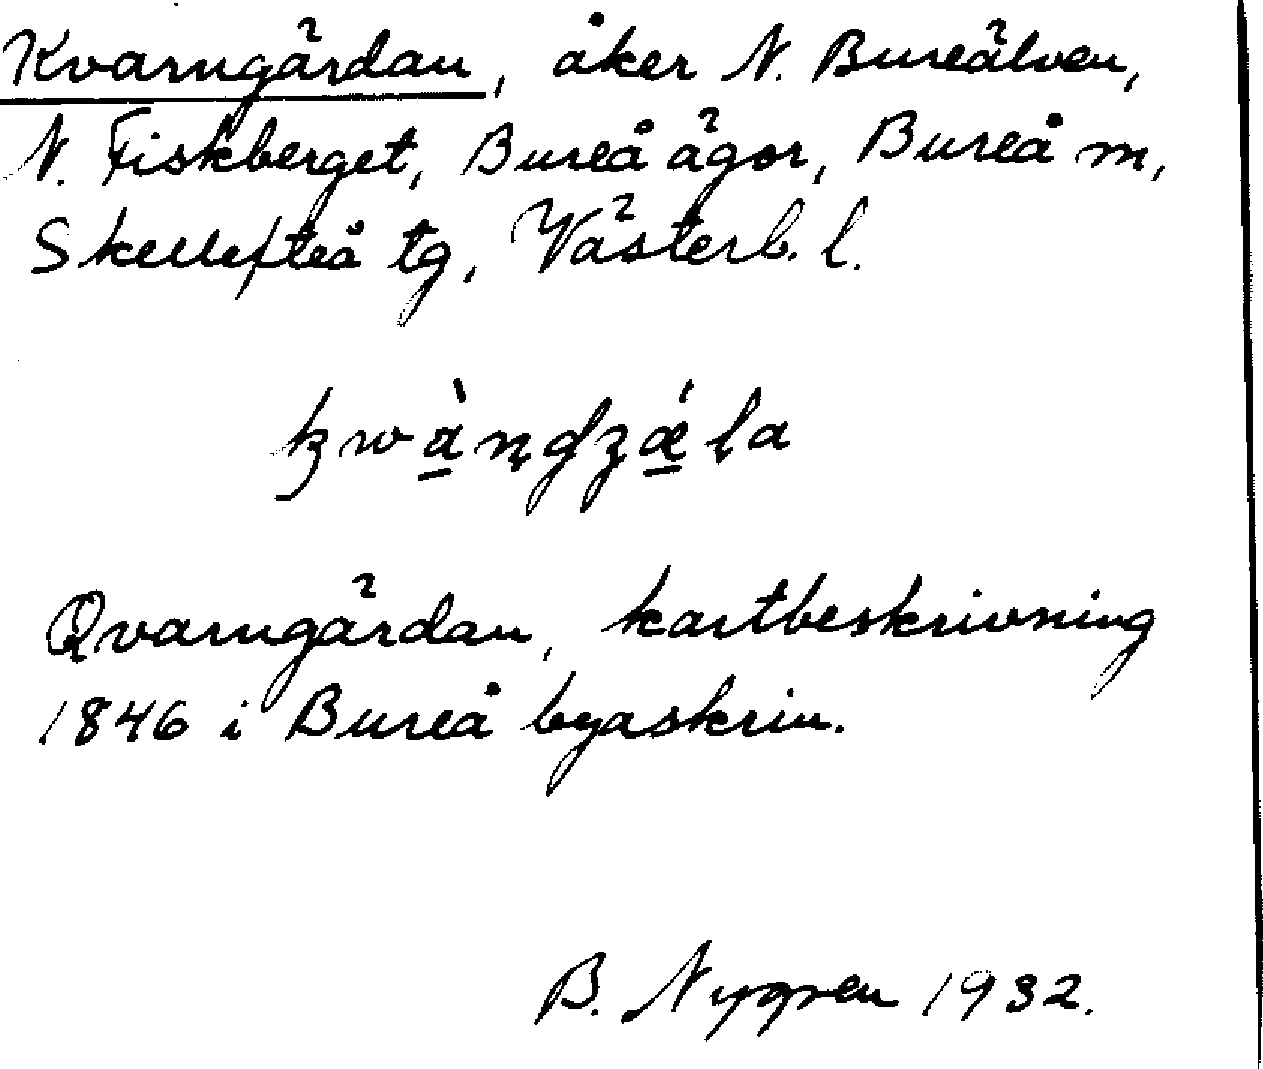 Kvarngärdan, åker N. Bureälven,
N. Fiskberget, Bureå ägor, Bureå m,
Skellefteå tg, Västerb. l.
Qvarngärdan, kartbeskrivning
1846 i Bureå byaskrin.
B. Nygren 1932.